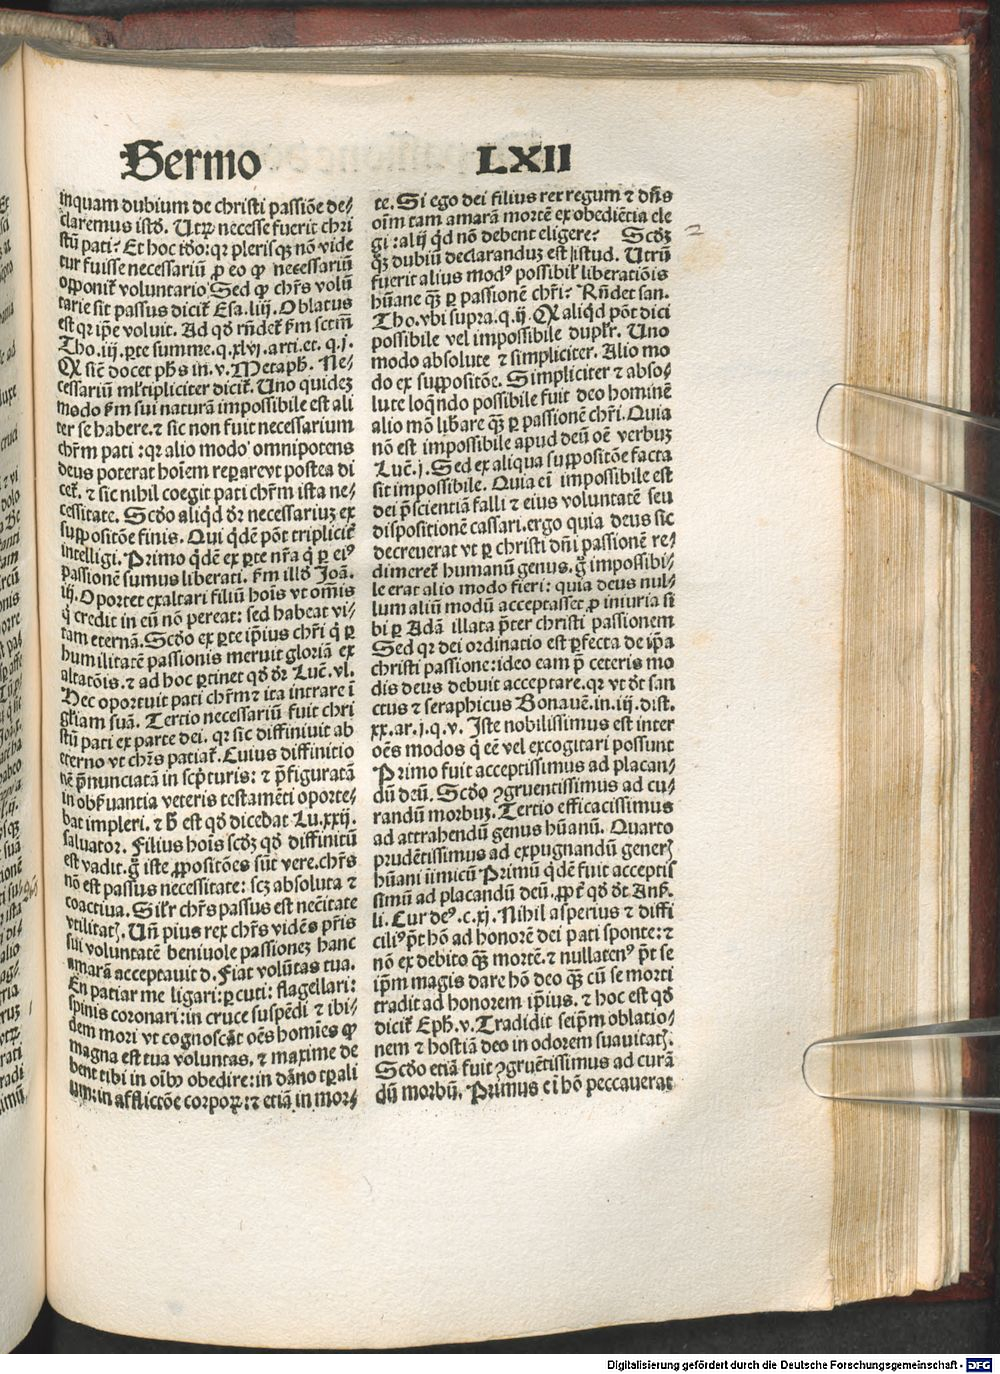 Sermo LXII
inquam dubium de christi passiōe de⸗
claremus istđ. Utrꝝ necesse fuerit chri
stū pati? Et hoc iđo: qꝛ plerisqꝫ nō vide
tur fuisse necessariū ꝓ eo qꝫ necessariū
opponit᷑ voluntario Sed qꝫ chr̄s volū
tarie sit passus dicit᷑ Esa. liij. Oblatus
est qꝛ ip̄e voluit. Ad qđ rn̄det᷑ ẜm sctm̄
Tho. iij. ꝑte summe. q. xlvj. arti. et. q. j.
Ꝙ sic̄ docet ph̄s in. v. Metaph̄. Ne⸗
cessariū ml̓tipliciter dicit᷑. Uno quidez
modo ẜm sui naturā impossibile est ali
ter se habere. ⁊ sic non fuit necessarium
chr̄m pati: qꝛ alio modo omnipotens
deus poterat hoīem reparevt postea di
cet᷑. ⁊ sic nihil coegit pati chr̄m ista ne⸗
cessitate. Scđo aliqđ dr̄ necessariuz ex
suppositōe finis. Qui qđē pōt triplicit᷑
intelligi. Primo qđē ex ꝑte nr̄a q̄ ꝑ eiꝰ
passionē sumus liberati. ẜm illđ Joā.
iij. Oportet exaltari filiū hoīs vt om̄is
q̓ credit in eū nō pereat: sed habeat vi⸗
tam eternā. Scđo ex ꝑte ip̄ius chr̄i q̓ ꝑ
humilitatē passionis meruit gloriā ex
altatōis. ⁊ ad hoc ꝑtinet qđ dr̄ Luc̄. vl.
Hec oportuit pati chr̄m ⁊ ita intrare ī
gl̄iam suā. Tertio necessariū fuit chri
stū pati ex parte dei. qꝛ sic diffiniuit ab
eterno vt chr̄s patiat᷑. Cuius diffinitio
nē p̄nunciatā in scp̄turis: ⁊ p̄figuratā
in obẜuantia veteris testamēti oporte⸗
bat impleri. ⁊ h̄ est qđ dicebat Lu. xxij.
saluator. Filius hoīs scđz qđ diffinitū
est vadit. g̊ iste ꝓpositōes sūt vere. chr̄s
nō est passus necessitate: scꝫ absoluta ⁊
coactiua. Sil̓r chr̄s passus est nēcitate
vtilitatꝭ. Un̄ pius rex chr̄s vidēs pr̄is
sui voluntatē beniuole passionez hanc
amarā acceptauit d. Fiat volūtas tua.
En patiar me ligari: ꝑcuti: flagellari:
spinis coronari: in cruce suspēdi ⁊ ibi⸗
dem mori vt cognoscāt oēs homīes qꝫ
magna est tua voluntas. ⁊ maxime de
bent tibi in oībꝰ obedire: in dāno tꝑali
um: in afflictōe corpoꝝ: ⁊ etiā in mor⸗
te. Si ego dei filius rex regum ⁊ dn̄s
oīm tam amarā mortē ex obediētia ele
gi: alij qđ nō debent eligere? Scđz
qꝫ dubiū declaranduz est istud. Utrū
fuerit alius modꝰ possibil̓ liberatiōis
hūane qꝫ ꝑ passionē chr̄i? Rn̄det san.
Tho. vbi supra. q. ij. Ꝙ aliqđ pōt dici
possibile vel impossibile dupl̓r. Uno
modo absolute ⁊ simpliciter. Alio mo
do ex suppositōe. Simpliciter ⁊ abso⸗
lute loqn̄do possibile fuit deo hominē
alio mō lib̓are qꝫ ꝑ passionē chr̄i. Quia
nō est impossibile apud deū oē verbuz
Luc̄. j. Sed ex aliqua suppositōe facta
sit impossibile. Quia ei̅ impossibile est
dei p̄scientiā falli ⁊ eius voluntatē seu
dispositionē cassari. ergo quia deus sic
decreuerat vt ꝑ christi dn̄i passionē re⸗
dimeret᷑ humanū genus. g̊ impossibi⸗
le erat alio modo fieri: quia deus nul⸗
lum aliū modū acceptasset ꝓ iniuria si
bi ꝑ Adā illata p̄ter christi passionem
Sed qꝛ dei ordinatio est ꝑfecta de ip̄a
christi passione: ideo eam p̄ ceteris mo
dis deus debuit acceptare. qꝛ vt dt̄ san
ctus ⁊ seraphicus Bonauē. in. iij. dist.
xx. ar. j. q. v. Iste nobilissimus est inter
oēs modos q̓ eē vel excogitari possunt
Primo fuit acceptissimus ad placan⸗
dū deū. Scđo ꝯgruentissimus ad cu⸗
randū morbuz. Tertio efficacissimus
ad attrahendū genus hūanū. Quarto
prudētissimus ad expugnandū generꝭ
hūani īimicū Primū qđē fuit acceptis
simū ad placandū deū. ꝓpt̓ qđ dt̄ Anẜ.
li. Cur deꝰ. c. xj. Nihil asperius ⁊ diffi
ciliꝰ p̄t hō ad honorē dei pati sponte: ⁊
nō ex debito qꝫ mortē. ⁊ nullatenꝰ p̄t se
ip̄m magis dare hō deo qꝫ cū se morti
tradit ad honorem ip̄ius. ⁊ hoc est qđ
dicit᷑ Eph̄. v. Tradidit seip̄m oblatio⸗
nem ⁊ hostiā deo in odorem suauitatꝭ.
Scđo etiā fuit ꝯgruētissimus ad curā
dū morbū. Primus ei̅ hō peccauerat
Digitalisierung gefördert durch die Deutsche Forschungsgemeinschaft - DFG